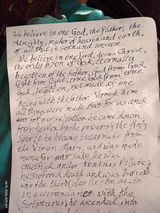 We believe in one God, the father, the
Almighty, maker of heaven and earth,
of all that is, seen and unseen.
We believe in one Lord, Jesus Christ,
the only son of God, eternally
begotten of the father, God from God,
Light from Light, true God from true
God, begotten, not made, of one
Being with the father. Through him
all things were made. For us and
for our salvation he came down
from heaven: by the power of the Holy
Spirit he became incarnate from
the Virgin Mary, and was made
man. For our sake he was
crucified under Pontius Pilate;
he suffered death and was buried.
on the third day he rose again
in accordance with the
Scriptures; he ascended into